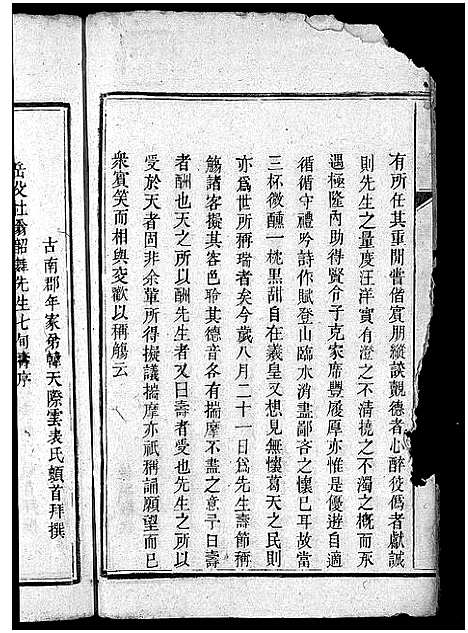 有所任其重閒嘗偕賓朋縱談觀德者心醉役僞者獻誠
則先生之量度汪洋實有澄之不清撓之不濁之概而承
遇極隆內助得賢令子克家席豐履厚亦惟是優遊自適
循循守禮吟詩作賦登山臨水消盡鄙吝之懷已耳故當
三杯微醺一枕黑甜自在羲皇又想見無懷葛天之民則
亦爲世所稱瑞者矣今歲八月二十一日爲先生壽節稱
觴諸客擬其客色聆其德音各有揣摩不盡之意予曰壽
者酬也天之所以酬先生者又曰壽者受也先生之所以
受於天者固非余輩所得擬議揣摩亦祇稱誦願望而已
衆賓笑而相與交歡以稱觴云
古南郡年家弟韓天際雲表氏頓首拜撰
岳父杜翁韶舞先生七旬壽序